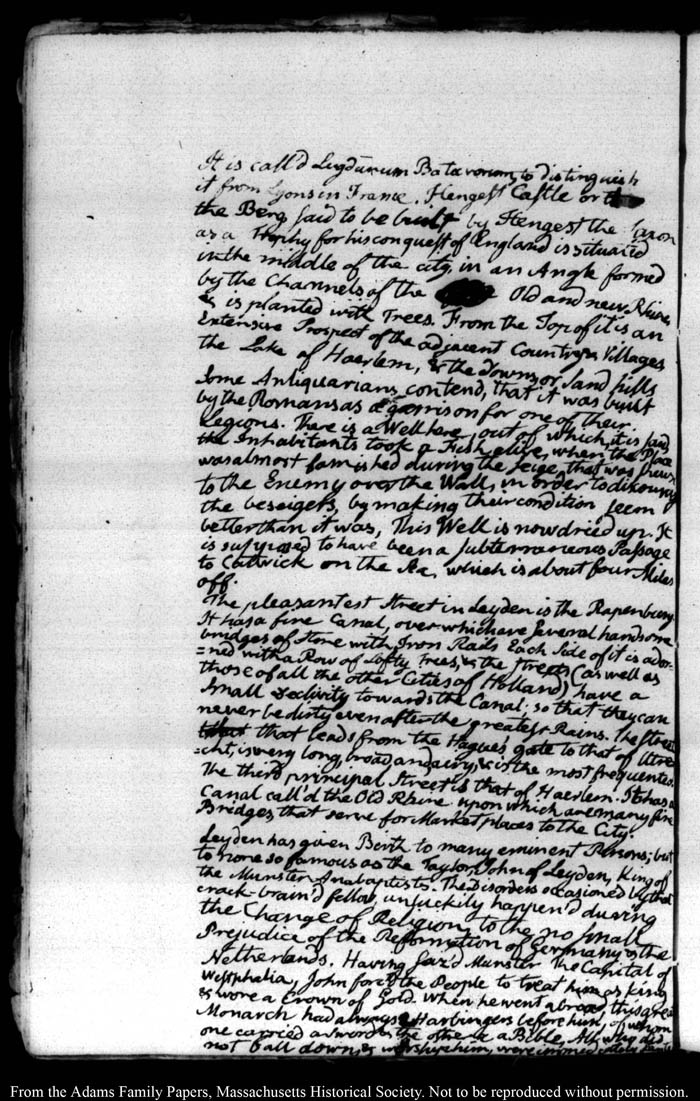 It is call'd Lugdunum Batavorum, to distinguish
it from Lyons in France. Hengest Castle or
the Berg said to be built by Hengest the Saxon
as a Trophy for his conquest of England is situated
in the middle of the city, in an Angle formed
by the Channels of the Old and new Rhine
& is planted with Trees. From the Top of it is an
Extensive Prospect of the adjacent Country & Villages
the Lake of Haerlem, & the Downs or Sand hills
Some Antiquarians contend, that it was built
by the Romans as a garrison for one of their
Legions. There is a Well here, out of which, it is said
the Inhabitants took a Fish alive, when the Place
was almost famished during the Seige, that was
to the Enemy over the Wall, in order to
the beseigers, by making their condition seem
better than it was, This Well is now dried up. It
is supposed to have been a subterraneous Passage
to Catwick on the Sea, which is about four Miles
off.
The pleasantest Street in Leyden is the Rapenburg
It has a fine Canal, over which are several handsome
bridges of stone with Iron Rails Each Side of it is ador-
=ned with a Row of Lofty Trees, & the streets (as well as
those of all the other Cities of Holland) have a
small declivity towards the Canal: so that they can
never be dirty even after the greatest Rains. The Street
that leads from the Hagues gate to that of Utre
=cht, is very long, broad and airy, & is the most frequented.
The third principal Street is that of Haerlem. It has a
Canal call'd the Old Rhine upon which are many fine
Bridges that serve for Market places to the City.
Leyden has given Birth to many eminent Persons; but
to none so famous as the Taylor, John of Leyden, King of
the Munster Anabaptists. The Disorders occasioned by that
crack-brain'd fellow, unluckily happen'd during
the Change of Religion, to the no small
Prejudice of the Reformation of Germany & the
Netherlands. Having seiz'd Munster The Capital of
Westphalia, John forc'd the People to treat him as King
& wore a Crown of Gold. When he went abroad, this great
Monarch had always 2 Harbingers before him, of whom
one carried a sword & the other a Bible, All who did
not fall down, & worship him, were
From the Adams Family Papers, Massachusetts Historical Society. Not to be reproduced without permission.